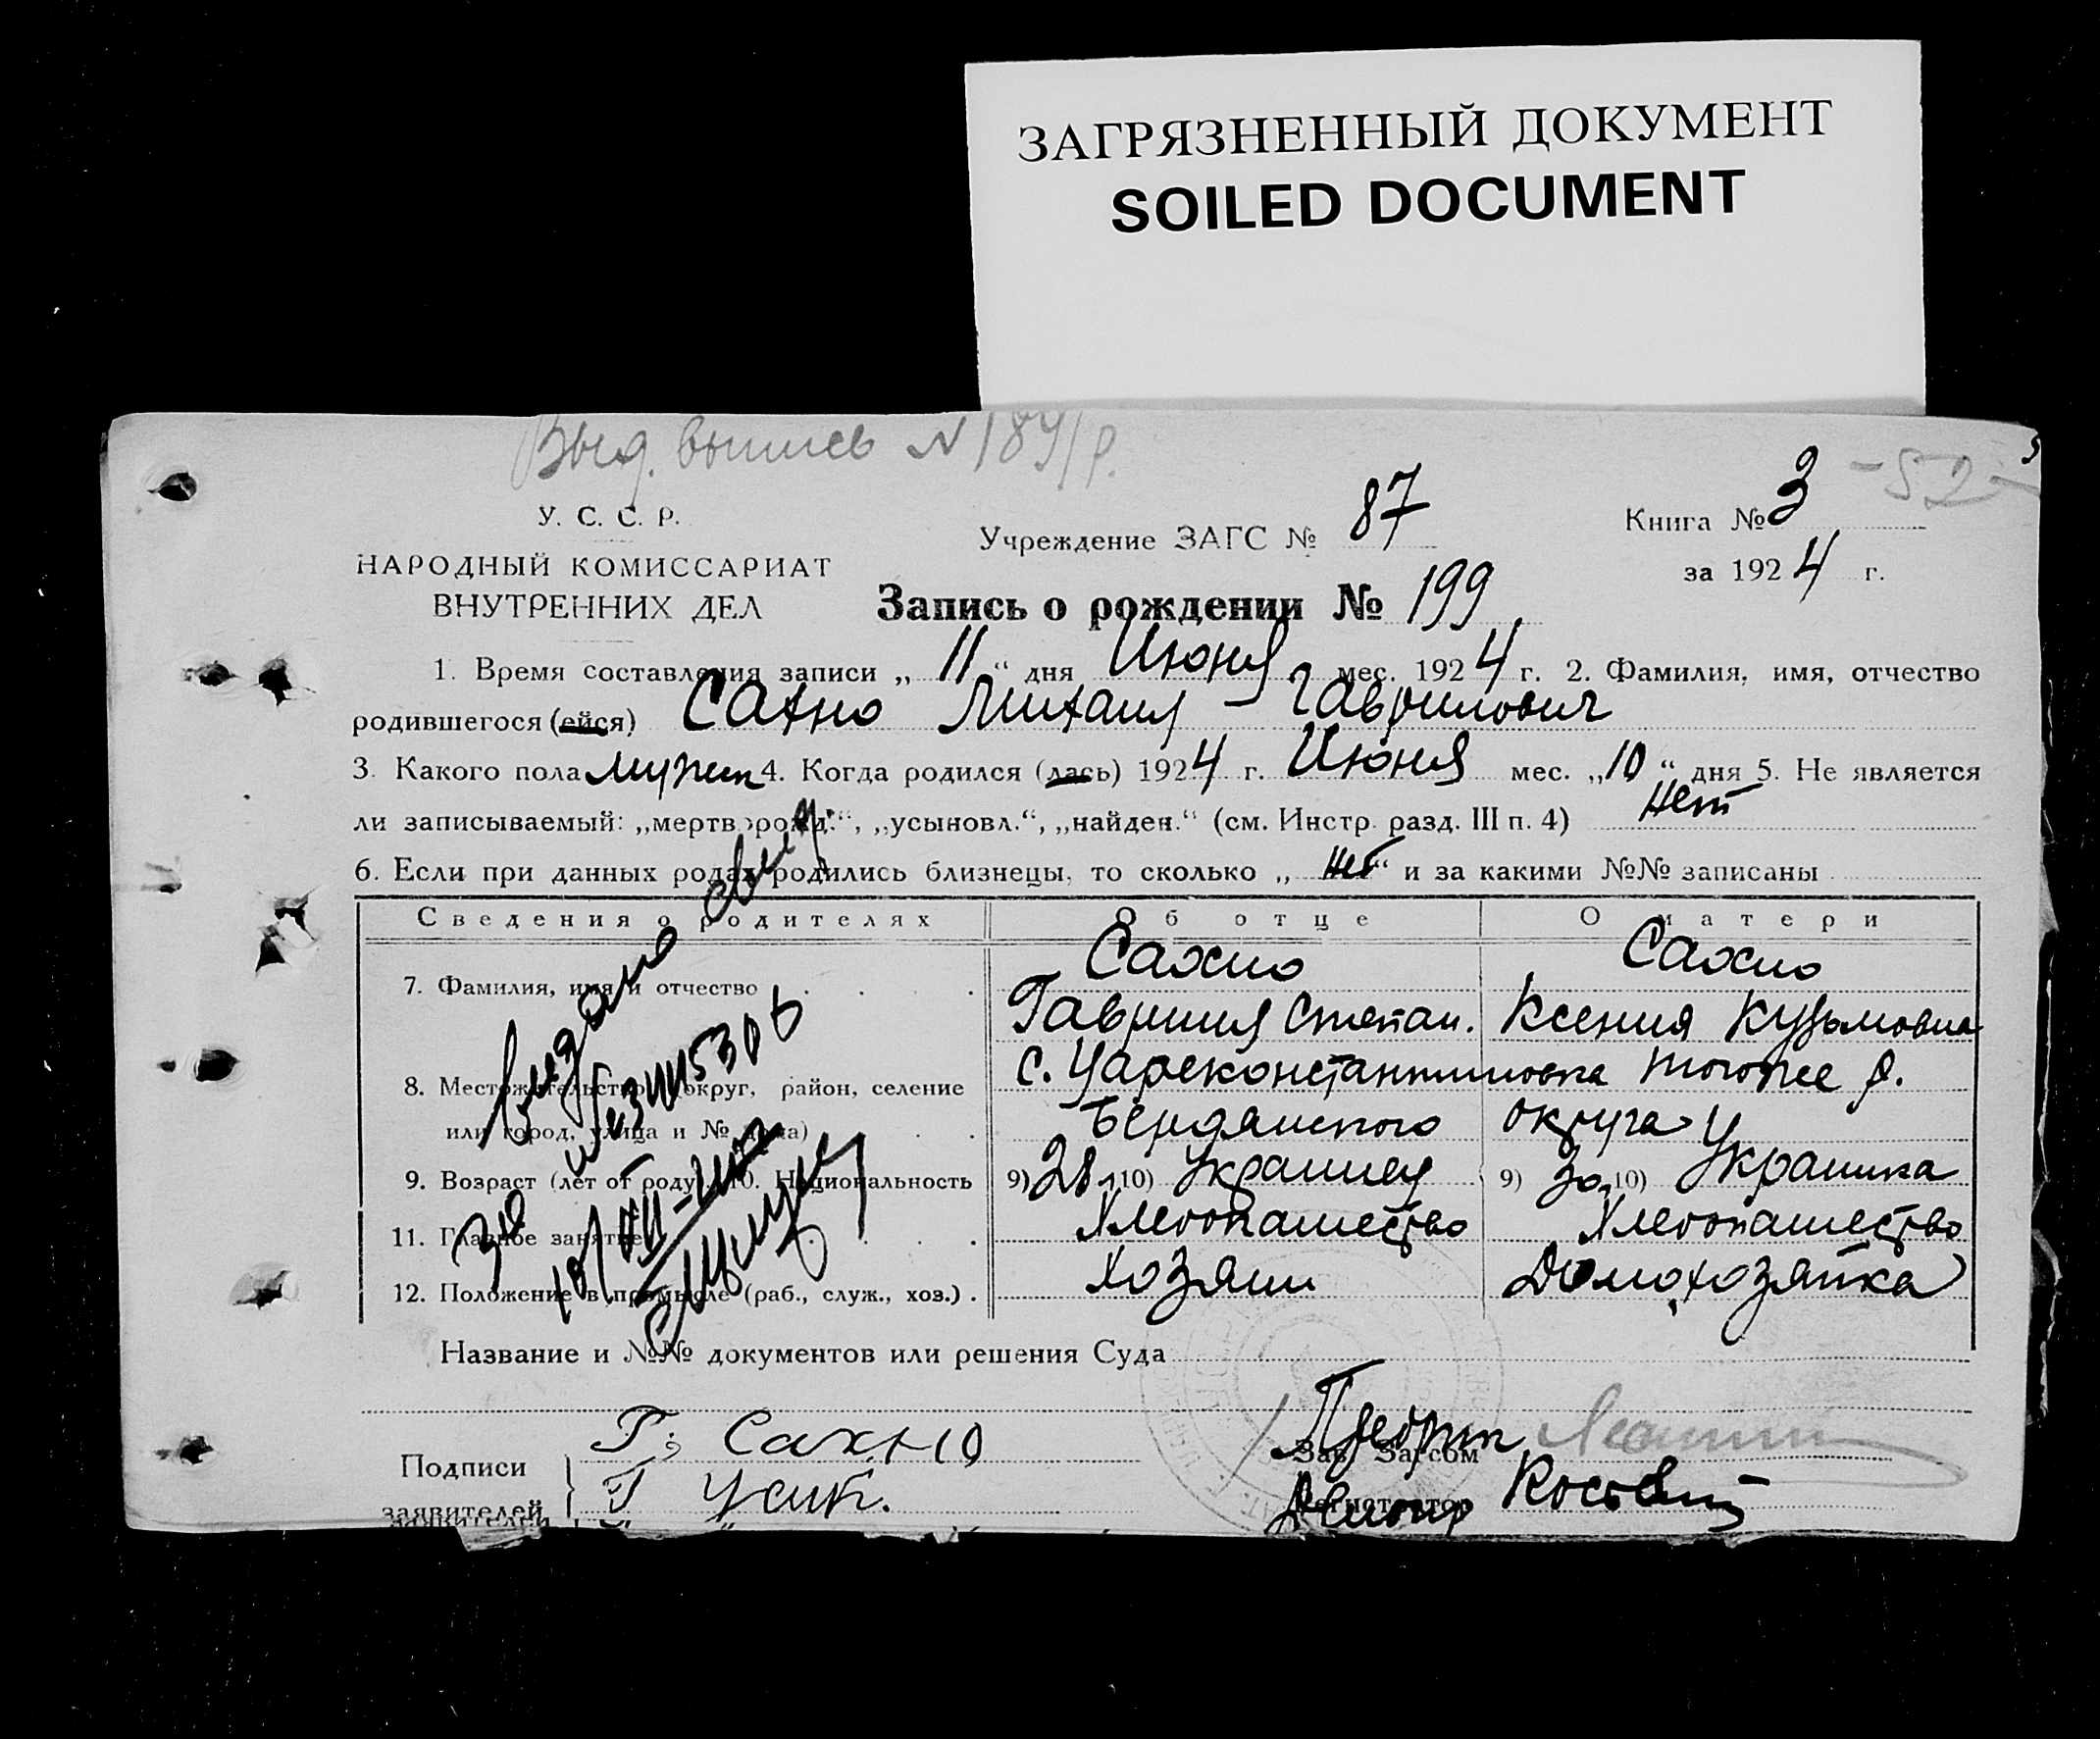 ЗАГРЯЗНЕННЫЙ ДОКУМЕНТ
SOILED DOCUMENT
Выд. выпись N 184/р.
-52-
У. С. С. Р.
НАРОДНЫЙ КОМИССАРИАТ
ВНУТРЕННИХ ДЕЛ
Учреждение ЗАГС № 87
Книга № 3
за 1924 г.
Запись о рождении № 199
1. Время составления записи „11“ дня Июня мес. 1924 г. 2. Фамилия, имя, отчество
родившегося (ейся) Сахно Михаил - Гаврилович
3. Какого пола мужск 4. Когда родился (лась) 1924 г. Июня мес. „10“ дня 5. Не является
ли записываемый: „мертворожд.“, „усыновл.“, „найден.“ (см. Инстр. разд. III п. 4) Нет
6. Если при данных родах родились близнецы, то сколько „нет“ и за какими №№ записаны
Сведения о родителях Об отце О матери
7. Фамилия, имя и отчество Сахно Сахно
Гавриил Степан. Ксения Кузьмовна
8. Местожительство (округ, район, селение с. Цареконстантиновка того же р.
или город, улица и № дома) Бердянского округа
9. Возраст (лет от роду). 10. Национальность 9) 28 л 10) Украинец 9) 30 л 10) Украинка
11. Главное занятие Хлебопашество Хлебопашество
12. Положение в промысле (раб., служ., хоз.) Хозяин Домохозяйка
Видано свид.
за
Название и №№ документов или решения Суда
Подписи
заявителей
Г. Сахно
Г Усик.
Зав. Загсом
Регистратор